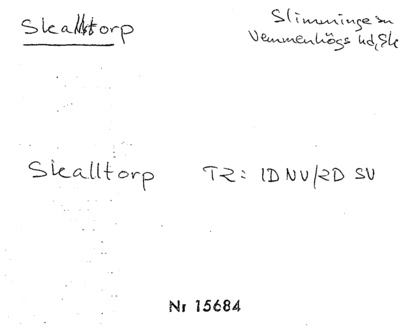 Skalltorp
Slimminge sn
Vemmenhögs hd, Sk
Skalltorp TZ: 1D NV/2D SV
Nr 15684